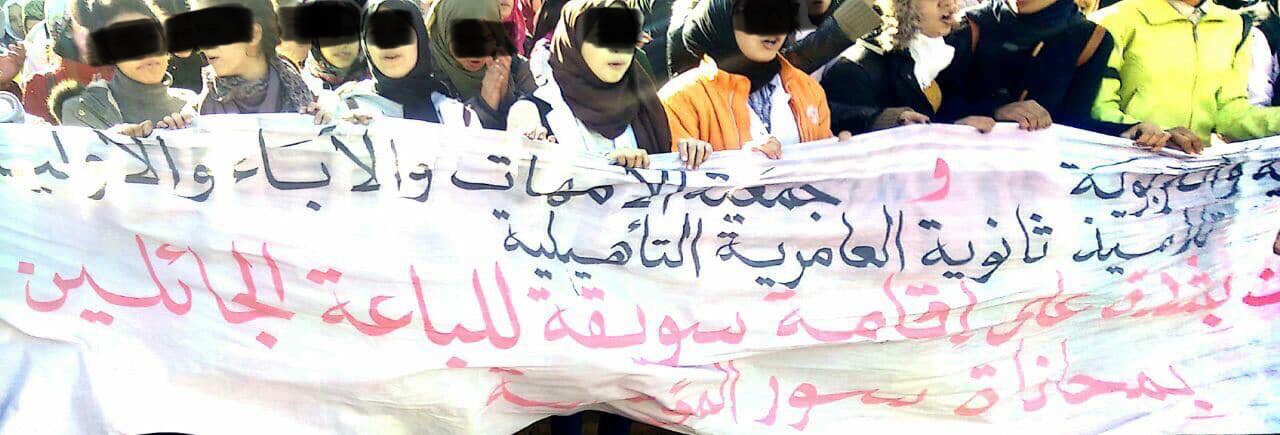 ية والتربوية و جمعية الأمهات والآباء والأوليـ
تلاميذ ثانوية العامرية التأهيلية
ـت بشدة على إقامة سويقة للباعة الجائلين
بمحاذاة سور المؤسسة